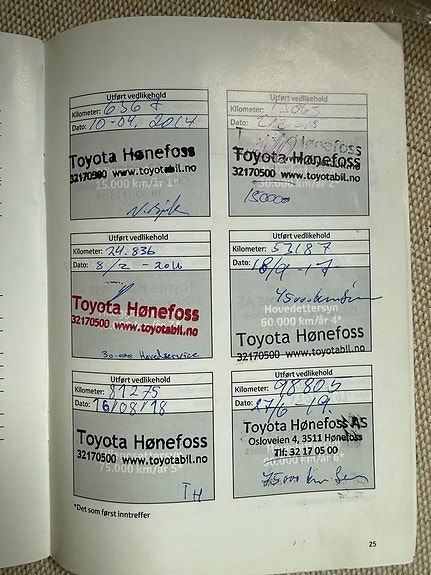 Utført vedlikehold
Kilometer: 6367
Dato: 10-04. 2014
Toyota Hønefoss
32170500 www.toyotabil.no
15.000 km/år 1*
Utført vedlikehold
Kilometer: 13063
Dato:
Toyota Hønefoss
32170500 www.toyotabil.no
30.000 km/år 2*
15000
Utført vedlikehold
Kilometer: 24.836
Dato: 8/2 - 2016
Toyota Hønefoss
32170500 www.toyotabil.no
30.000 Hovedservice
Utført vedlikehold
Kilometer: 53187
Dato: 18/9-17
45000km Serv
Hovedettersyn
60.000 km/år 4*
Toyota Hønefoss
32170500 www.toyotabil.no
Utført vedlikehold
Kilometer: 81275
Dato: 16/08/18
Toyota Hønefoss
32170500 www.toyotabil.no
75.000 km/år 5*
TH
Utført vedlikehold
Kilometer: 98805
Dato: 27/6-19.
Toyota Hønefoss AS
Osloveien 4, 3511 Hønefoss
Tlf: 32 17 05 00
75.000 km Serv
*Det som først inntreffer
25